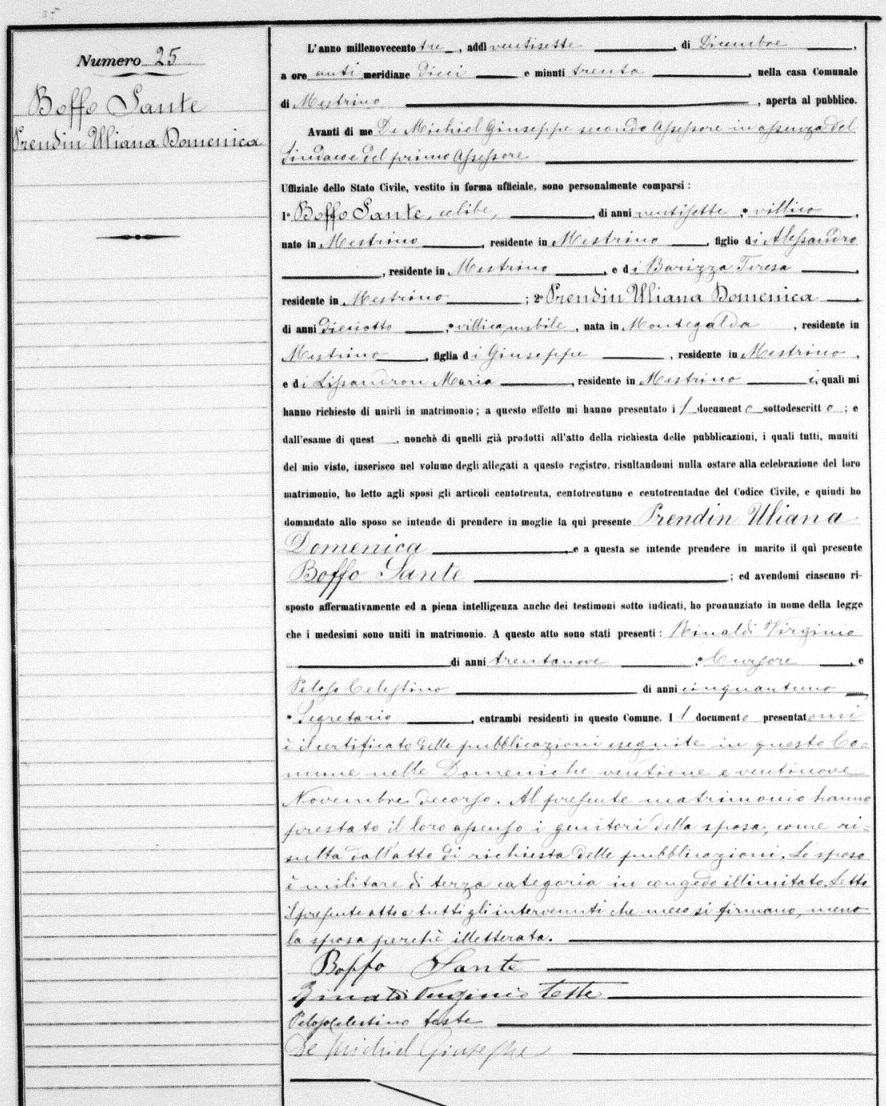 Numero 25
Boffo Sante
Prendin Uliana Domenica
L'anno millenovecento tre, addì ventisette, di Dicembre,
a ore anti meridiane dieci e minuti trenta, nella casa Comunale
di Mestrino, aperta al pubblico.
Avanti di me De Michiel Giuseppe secondo Assessore in assenza del
Sindaco e del primo Assessore
Uffiziale dello Stato Civile, vestito in forma ufficiale, sono personalmente comparsi:
1º Boffo Sante, celibe, di anni ventisette, villico,
nato in Mestrino, residente in Mestrino, figlio di Alessandro
, residente in Mestrino, e di Barizza Teresa,
residente in Mestrino; 2ª Prendin Uliana Domenica,
di anni dieciotto, villica, nubile, nata in Montegalda, residente in
Mestrino, figlia di Giuseppe, residente in Mestrino,
e di Lissandron Maria, residente in Mestrino i quali mi
hanno richiesto di unirli in matrimonio; a questo effetto mi hanno presentato il documento sottodescritto; e
dall'esame di quest, nonchè di quelli già prodotti all'atto della richiesta delle pubblicazioni, i quali tutti, muniti
del mio visto, inserisco nel volume degli allegati a questo registro, risultandomi nulla ostare alla celebrazione del loro
matrimonio, ho letto agli sposi gli articoli centotrenta, centotrentuno e centotrentadue del Codice Civile, e quindi ho
domandato allo sposo se intende di prendere in moglie la quì presente Prendin Uliana
Domenica e a questa se intende prendere in marito il quì presente
Boffo Sante; ed avendomi ciascuno ri-
sposto affermativamente ed a piena intelligenza anche dei testimoni sotto indicati, ho pronunziato in nome della legge
che i medesimi sono uniti in matrimonio. A questo atto sono stati presenti: Rinaldi Virginio
di anni trentanove, Cursore, e
Peloso Celestino di anni cinquantuno
Segretario, entrambi residenti in questo Comune. Il documento presentatomi
è il certificato delle pubblicazioni eseguite in questo Co-
mune nelle Domeniche ventidue e ventinove
Novembre decorso. Al presente matrimonio hanno
prestato il loro assenso i genitori della sposa, come ri-
sulta dall'atto di richiesta delle pubblicazioni. Lo sposo
è militare di terza categoria in congedo illimitato. Letto
il presente atto a tutti gli intervenuti che meco si firmano, meno
la sposa perchè illetterata.
Boffo Sante
Rinaldi Virginio teste
Peloso Celestino teste
De Michiel Giuseppe